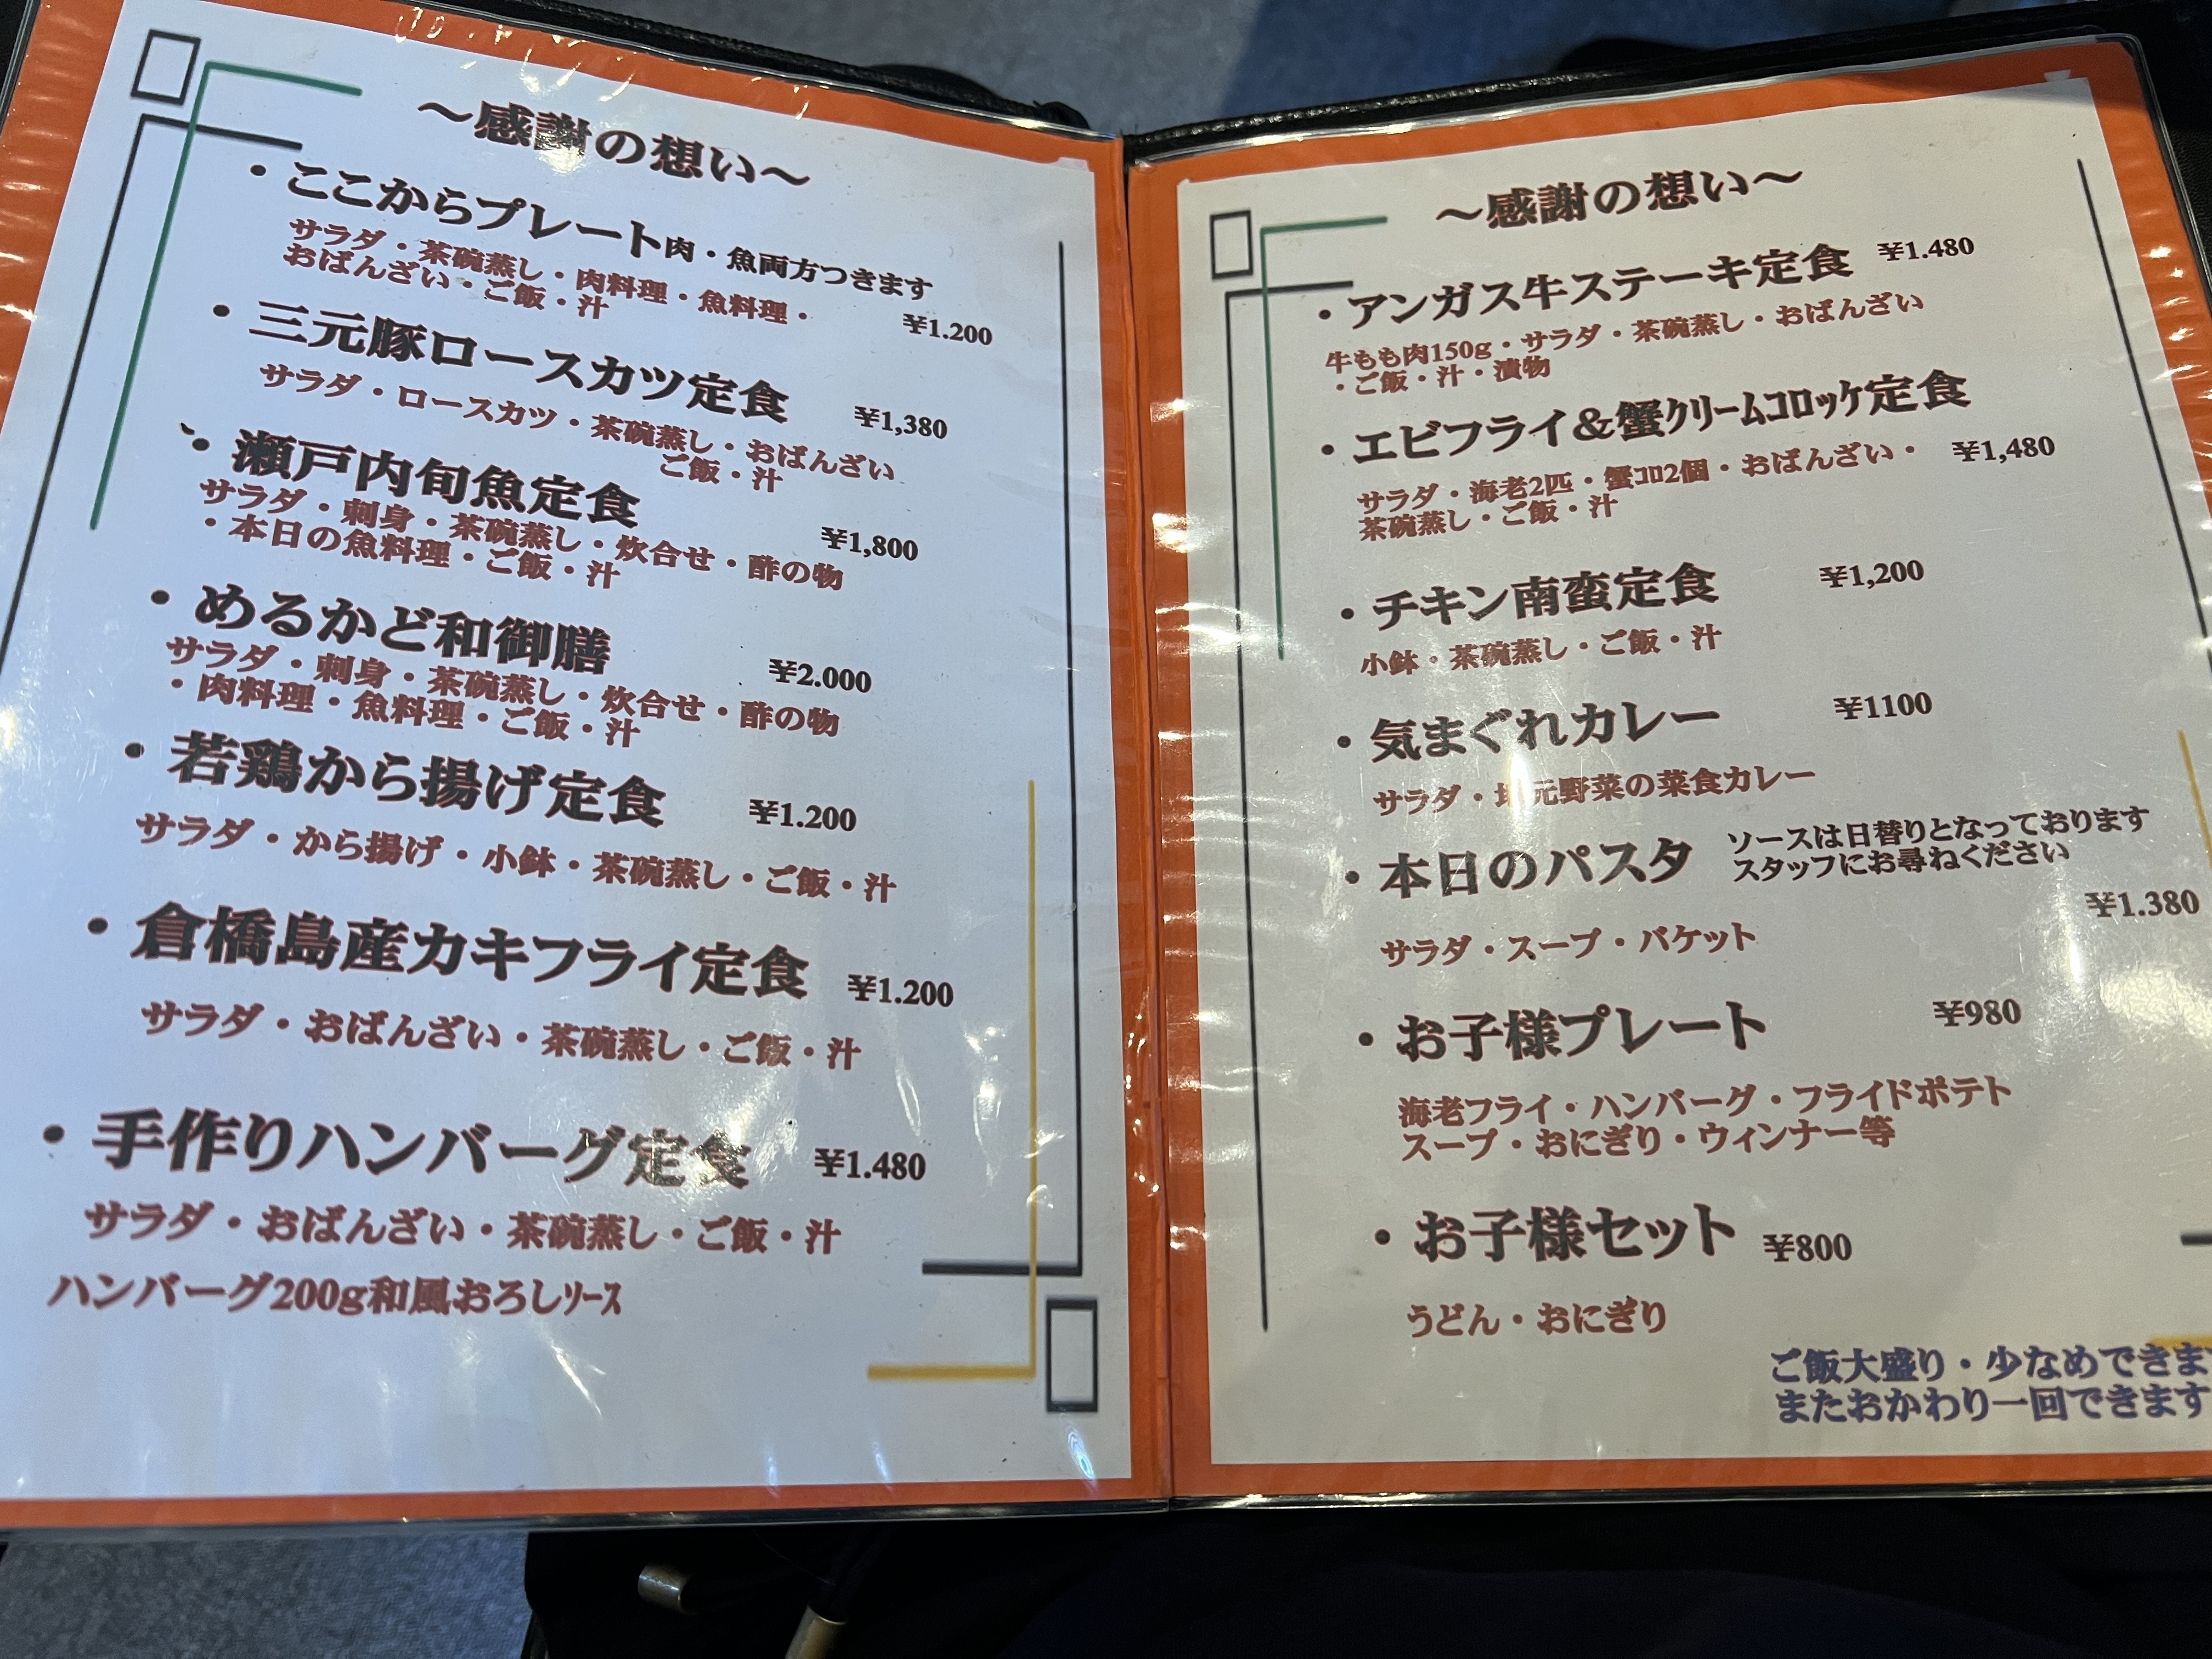 ～感謝の想い～
・ここからプレート肉・魚両方つきます
サラダ・茶碗蒸し・肉料理・魚料理・
おばんざい・ご飯・汁
¥1.200
・三元豚ロースカツ定食
¥1,380
サラダ・ロースカツ・茶碗蒸し・おばんざい
ご飯・汁
・瀬戸内旬魚定食
¥1,800
サラダ・刺身・茶碗蒸し・炊合せ・酢の物
・本日の魚料理・ご飯・汁
・めるかど和御膳
¥2.000
サラダ・刺身・茶碗蒸し・炊合せ・酢の物
・肉料理・魚料理・ご飯・汁
・若鶏から揚げ定食
¥1.200
サラダ・から揚げ・小鉢・茶碗蒸し・ご飯・汁
・倉橋島産カキフライ定食
¥1.200
サラダ・おばんざい・茶碗蒸し・ご飯・汁
・手作りハンバーグ定食
¥1.480
サラダ・おばんざい・茶碗蒸し・ご飯・汁
ハンバーグ200g和風おろしｿｰｽ
～感謝の想い～
・アンガス牛ステーキ定食
¥1.480
牛もも肉150g・サラダ・茶碗蒸し・おばんざい
・ご飯・汁・漬物
・エビフライ＆蟹ｸﾘｰﾑｺﾛｯｹ定食
¥1,480
サラダ・海老2匹・蟹ｺﾛ2個・おばんざい・
茶碗蒸し・ご飯・汁
・チキン南蛮定食
¥1,200
小鉢・茶碗蒸し・ご飯・汁
・気まぐれカレー
¥1100
サラダ・地元野菜の菜食カレー
・本日のパスタ
ソースは日替りとなっております
スタッフにお尋ねください
¥1.380
サラダ・スープ・バケット
・お子様プレート
¥980
海老フライ・ハンバーグ・フライドポテト
スープ・おにぎり・ウィンナー等
・お子様セット
¥800
うどん・おにぎり
ご飯大盛り・少なめできま
またおかわり一回できます